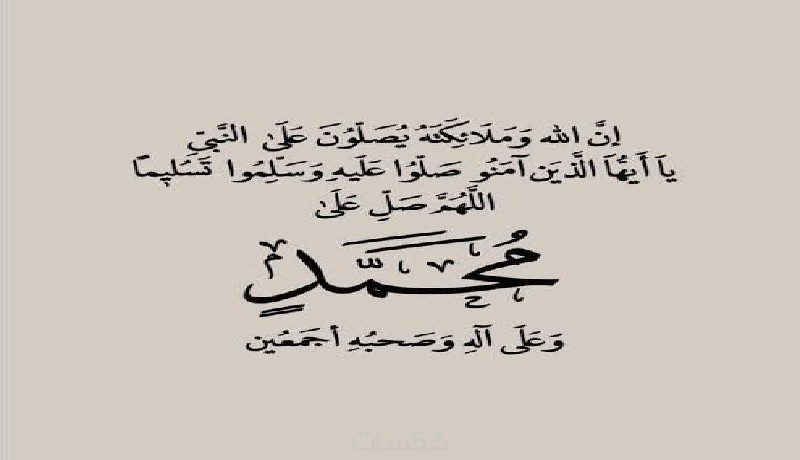 إنَّ الله وَمَلَائِكَتَهُ يُصَلّوُنَ عَلَىٰ النَّبِيّ
يَا أَيّهُاَ الَّذِيَن آمَنُو صَلّوُا عَليَهِ وَسَلِّمُوا تَسْلِيمًا
اللَّهُمَّ صَلِّ عَلَىٰ
مُحَمَّدٍ
وَعَلَى آلهِ وَصَحبُهِ أجمَعُين
خمسات